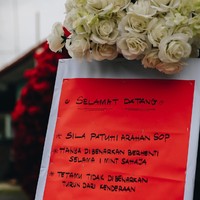 SELAMAT DATANG
SILA PATUHI ARAHAN SOP
HANYA DIBENARKAN BERHENTI
SELAMA 1 MINIT SAHAJA
TETAMU TIDAK DIBENARKAN
TURUN DARI KENDERAAN